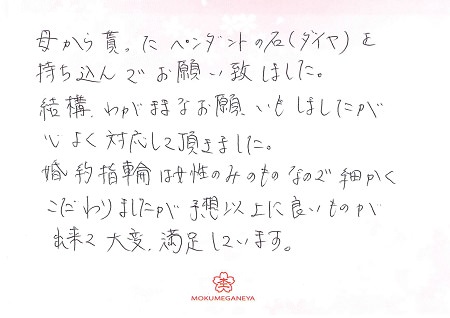 母から貰った ペンダントの石(ダイヤ)を
持ち込んで お願い致しました。
結構、わがままなお願いもしましたが
心よく対応して頂きました。
婚約指輪は女性のみのものなので細かく
こだわりましたが予想以上に良いものが
出来て大変、満足しています。
MOKUMEGANEYA